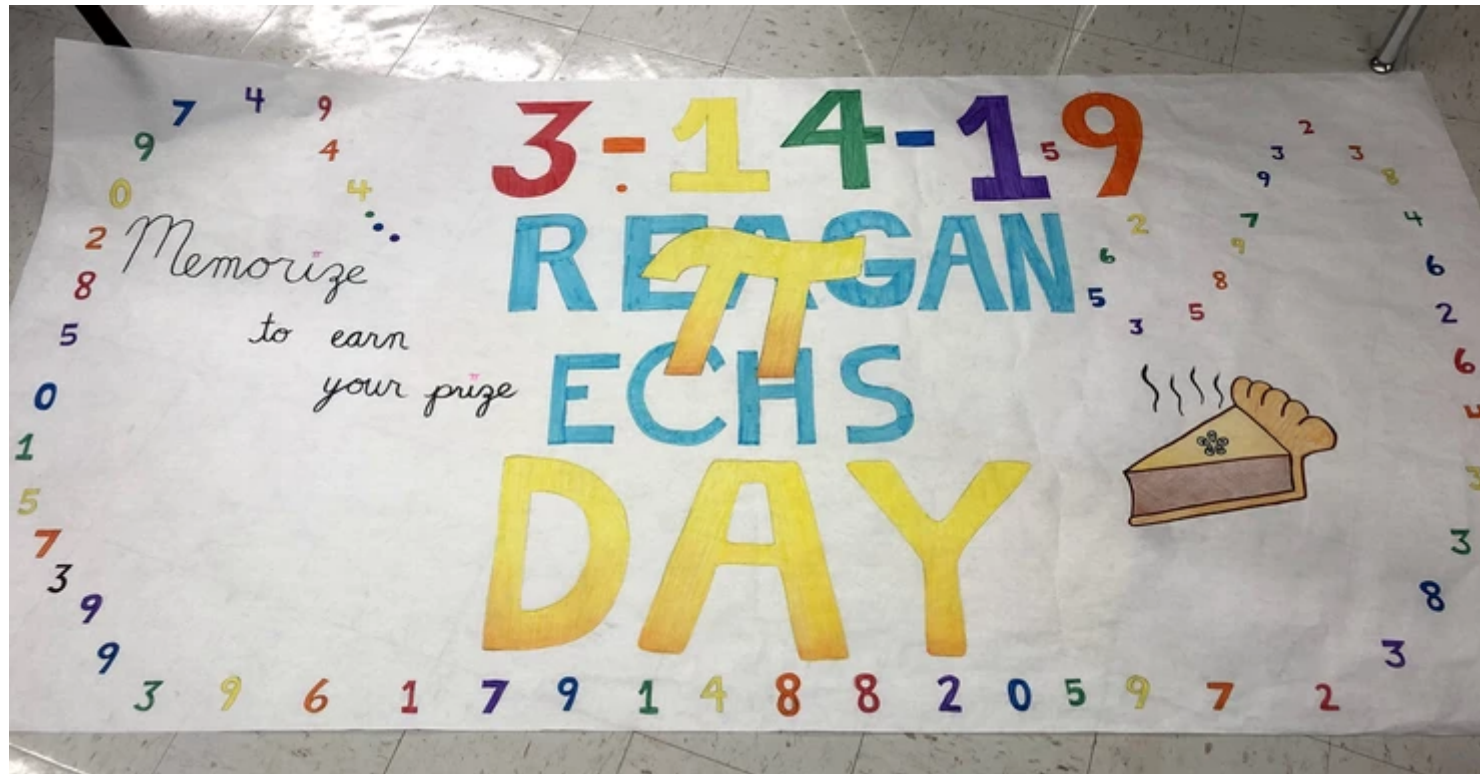 3-14-159
REAGAN
π
ECHS
DAY
Memorize
to earn
your prize
2 6 5 3 5 8 9 7 9 3 2 3 8 4 6 2 6 4 3 3 8 3
3 9 6 1 7 9 1 4 8 8 2 0 5 9 7 2
9 9 3 7 5 1 0 5 8 2 0 9 7 4 9 4 4 ...